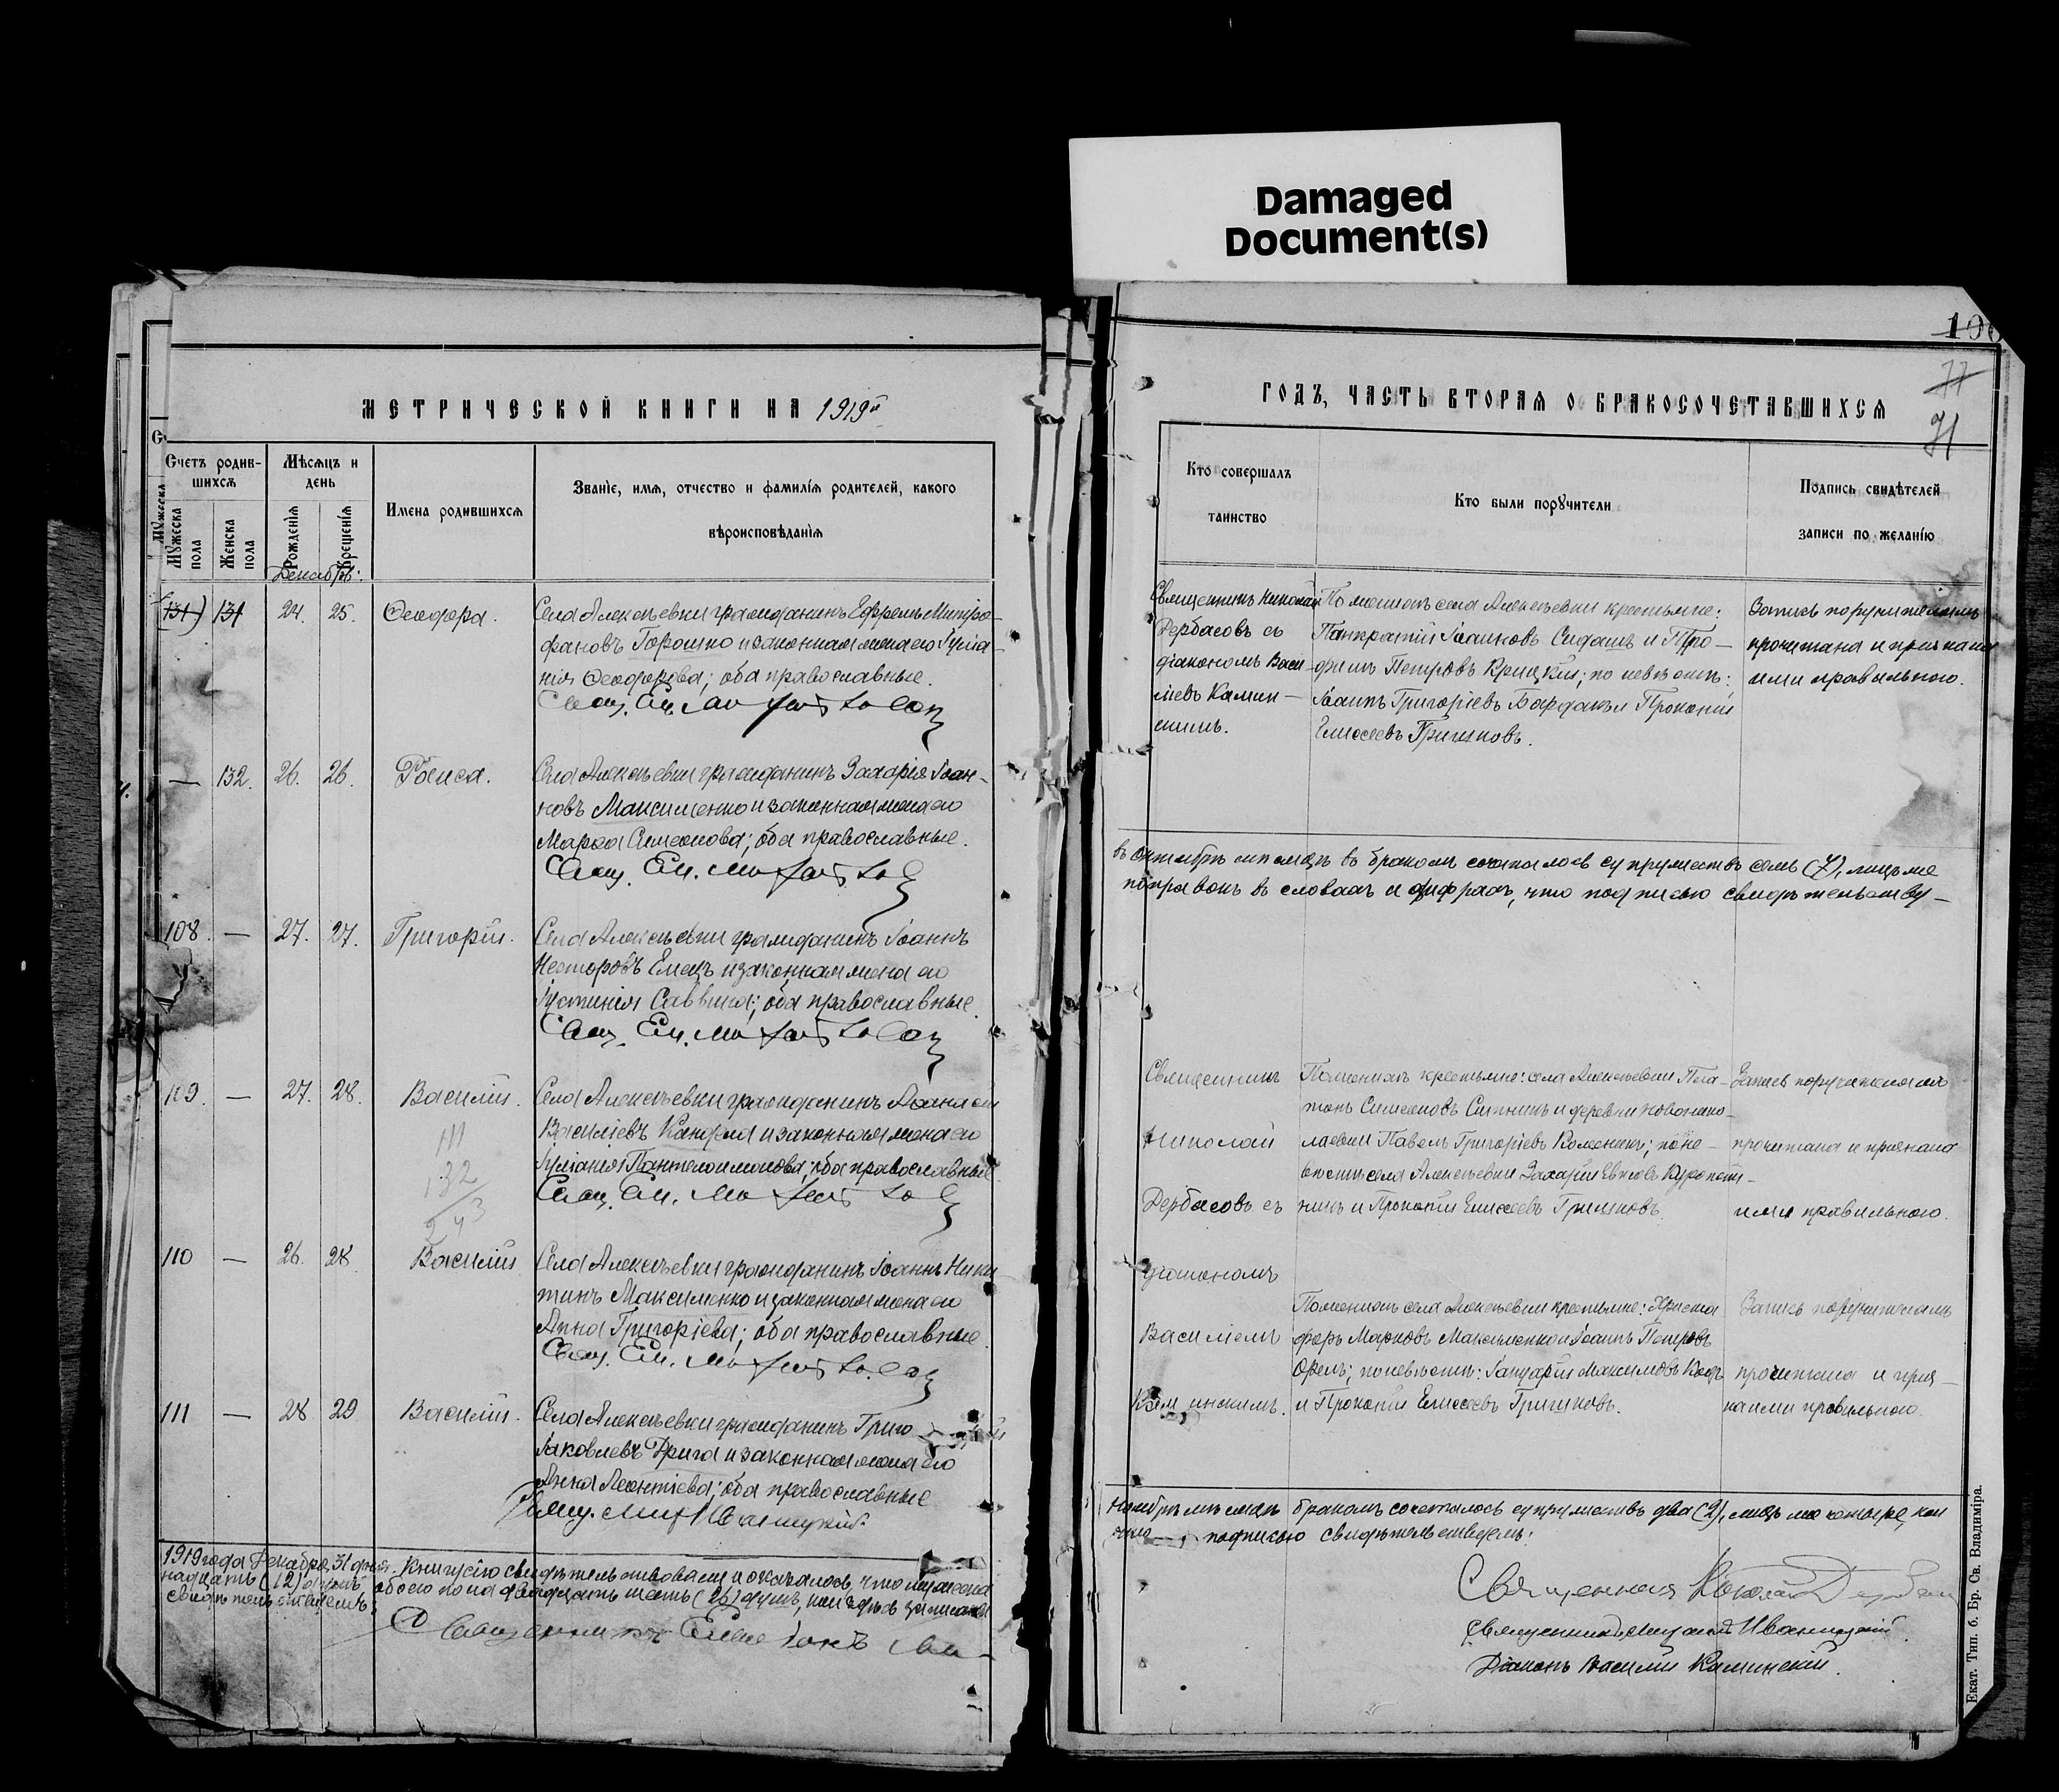 Damaged
Document(s)
МЕТРИЧЕСКОЙ КНИГИ НА 1919й
Счетъ родив-
шихсѧ
Мѣсѧцъ и
день
Имена родившихсѧ
Званіе, имѧ, отчество и фамилія родителей, какого
вѣроисповѣданія
Мꙋжеска
пола
Женска
пола
Рожденія
Крещенія
Декабрь.
(131) 131 24. 25. Ѳеодора.
Села Алексѣевки гражданинъ Ефремъ Митро-
фановъ Горошко и законная жена его Іуліа-
нія Ѳеодорова; оба православные.
Свящ. Ем.
— 132. 26. 26. Раиса.
Села Алексѣевки гражданинъ Захарія Іоан-
новъ Максименко и законная жена его
Марѳа Симеонова; оба православные.
Свящ. Ем.
108. — 27. 27. Григорій.
Села Алексѣевки гражданинъ Іоаннъ
Несторовъ Емецъ и законная жена его
Іустинія Саввина; оба православные.
Свящ. Ем.
109. — 27. 28. Василій.
Села Алексѣевки гражданинъ Аѳанасій
Василіевъ и законная жена его
Іуліанія Пантелеимонова; оба православные
Свящ. Ем.
111
132
243
110 — 26. 28. Василій
Села Алексѣевки гражданинъ Іоаннъ Ники
тинъ Максименко и законная жена его
Анна Григоріева; оба православные.
Свящ. Ем.
111 — 28 29 Василій.
Села Алексѣевки гражданинъ Григо
Іаковлевъ Дрига и законная жена его
Анна Леонтіева; оба православные
Свящ. Иваницкій.
1919 года Декабря 31 дня. Книгу сію свидѣтельствовали и оказалось, что
надцать (12) душъ, обоего пола двадцать шесть (26) душъ, кои здѣсь записаны
свидѣтельствуемъ.
Священникъ
100
77
71
ГОДЪ, ЧАСТЬ ВТОРАѦ О БРАКОСОЧЕТАВШИХСѦ
Кто совершалъ
таинство
Кто были порꙋчители
Подпись свидѣтелей
записи по желанію
Священникъ Николай
Дербасовъ съ
діакономъ Васи-
ліевъ Камин-
скимъ.
По женихѣ села Алексѣевки крестьяне:
Панкратій Іоанновъ Сидашъ и Тро-
фимъ Петровъ Крицкій; по невѣстѣ:
Іоаннъ Григоріевъ Бардакъ и Прокопій
Елисеевъ Гришковъ.
Запись поручителямъ
прочитана и признана
ими правильною.
въ октябрѣ мѣсяцѣ въ бракомъ сочеталось супружествъ семь (7), лицъ же
поправокъ въ словахъ и цифрахъ, что подписью свидѣтельству-
Священникъ
Николай
Дербасовъ съ
діакономъ
Василіемъ
Каминскимъ.
По женихѣ крестьяне: села Алексѣевки Пла-
тонъ Симеоновъ Ситникъ и деревни Новонико-
лаевки Павелъ Григоріевъ; по не-
вѣстѣ села Алексѣевки Захарій Куропят-
никъ и Прокопій Елисеевъ Гришковъ.
Запись поручителямъ
прочитана и признана
ими правильною.
По женихѣ села Алексѣевки крестьяне: Христо
форъ Марковъ Максименко и Іоаннъ Петровъ
Орелъ; по невѣстѣ: Іануарій Максимовъ
и Прокопій Елисеевъ Гришковъ.
Запись поручителямъ
прочитана и приз-
на ими правильною.
Ноябрѣ мѣсяцѣ бракомъ сочеталось супружествъ два (2), лицъ же четыре, кои
подписью свидѣтельствуемъ:
Священникъ Николай Дербасовъ
Священникъ Иваницкій.
Діаконъ Василій Каминскій.
Екат. Тип. б. Бр. Св. Владиміра.